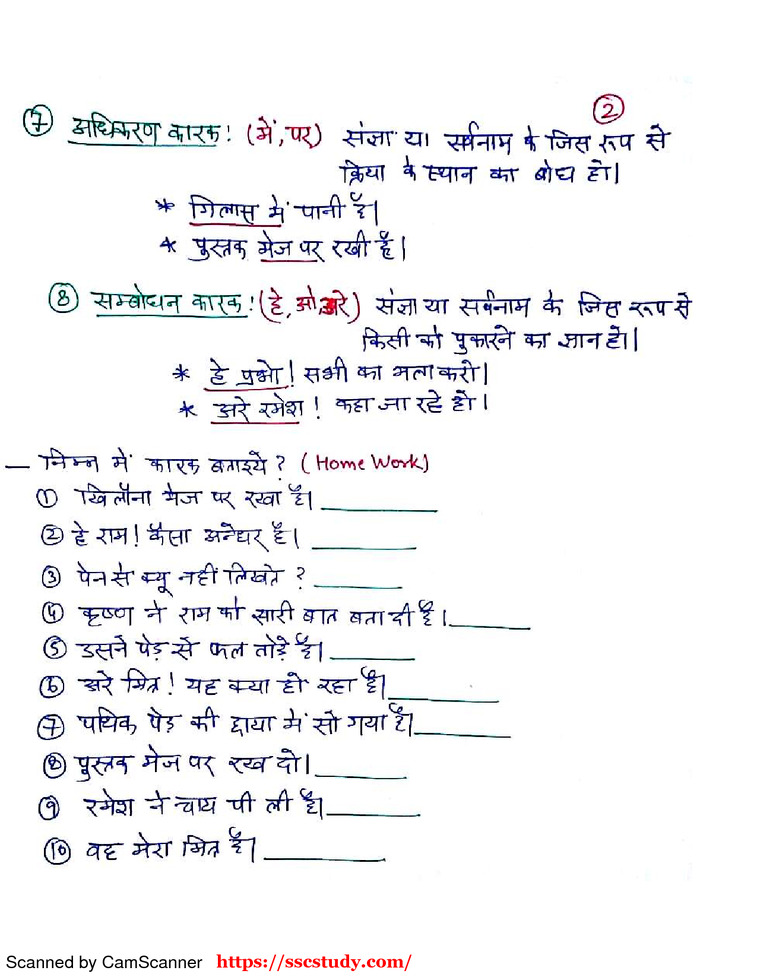 ②
⑦ अधिकरण कारक! (में, पर) संज्ञा या सर्वनाम के जिस रूप से
क्रिया के स्थान का बोध हो।
* गिलास में पानी है।
* पुस्तक मेज पर रखी है।
⑧ सम्बोधन कारक! (हे, ओ, अरे) संज्ञा या सर्वनाम के जिस रूप से
किसी को पुकारने का ज्ञान हो।
* हे प्रभो! सभी का भला करो।
* अरे रमेश! कहा जा रहे हो।
— निम्न में कारक बताइये? (Home Work)
① खिलौना मेज पर रखा है। ________
② हे राम! कैसा अन्धेर है। ________
③ पेन से क्यू नहीं लिखते? ________
④ कृष्ण ने राम को सारी बात बता दी है। ________
⑤ उसने पेड़ से फल तोड़े है। ________
⑥ अरे मित्र! यह क्या हो रहा है। ________
⑦ पथिक पेड़ की छाया में सो गया है। ________
⑧ पुस्तक मेज पर रख दो। ________
⑨ रमेश ने चाय पी ली है। ________
⑩ वह मेरा मित्र है। ________
Scanned by CamScanner https://sscstudy.com/